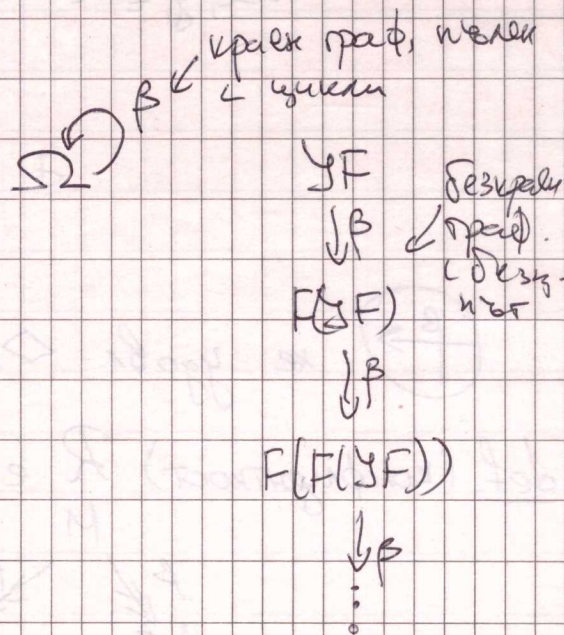 краен граф, пълен
β с цикли
Ω
YF
↓β
безкраен
граф.
с безц.
път
F(YF)
↓β
F(F(YF))
↓β
⋮